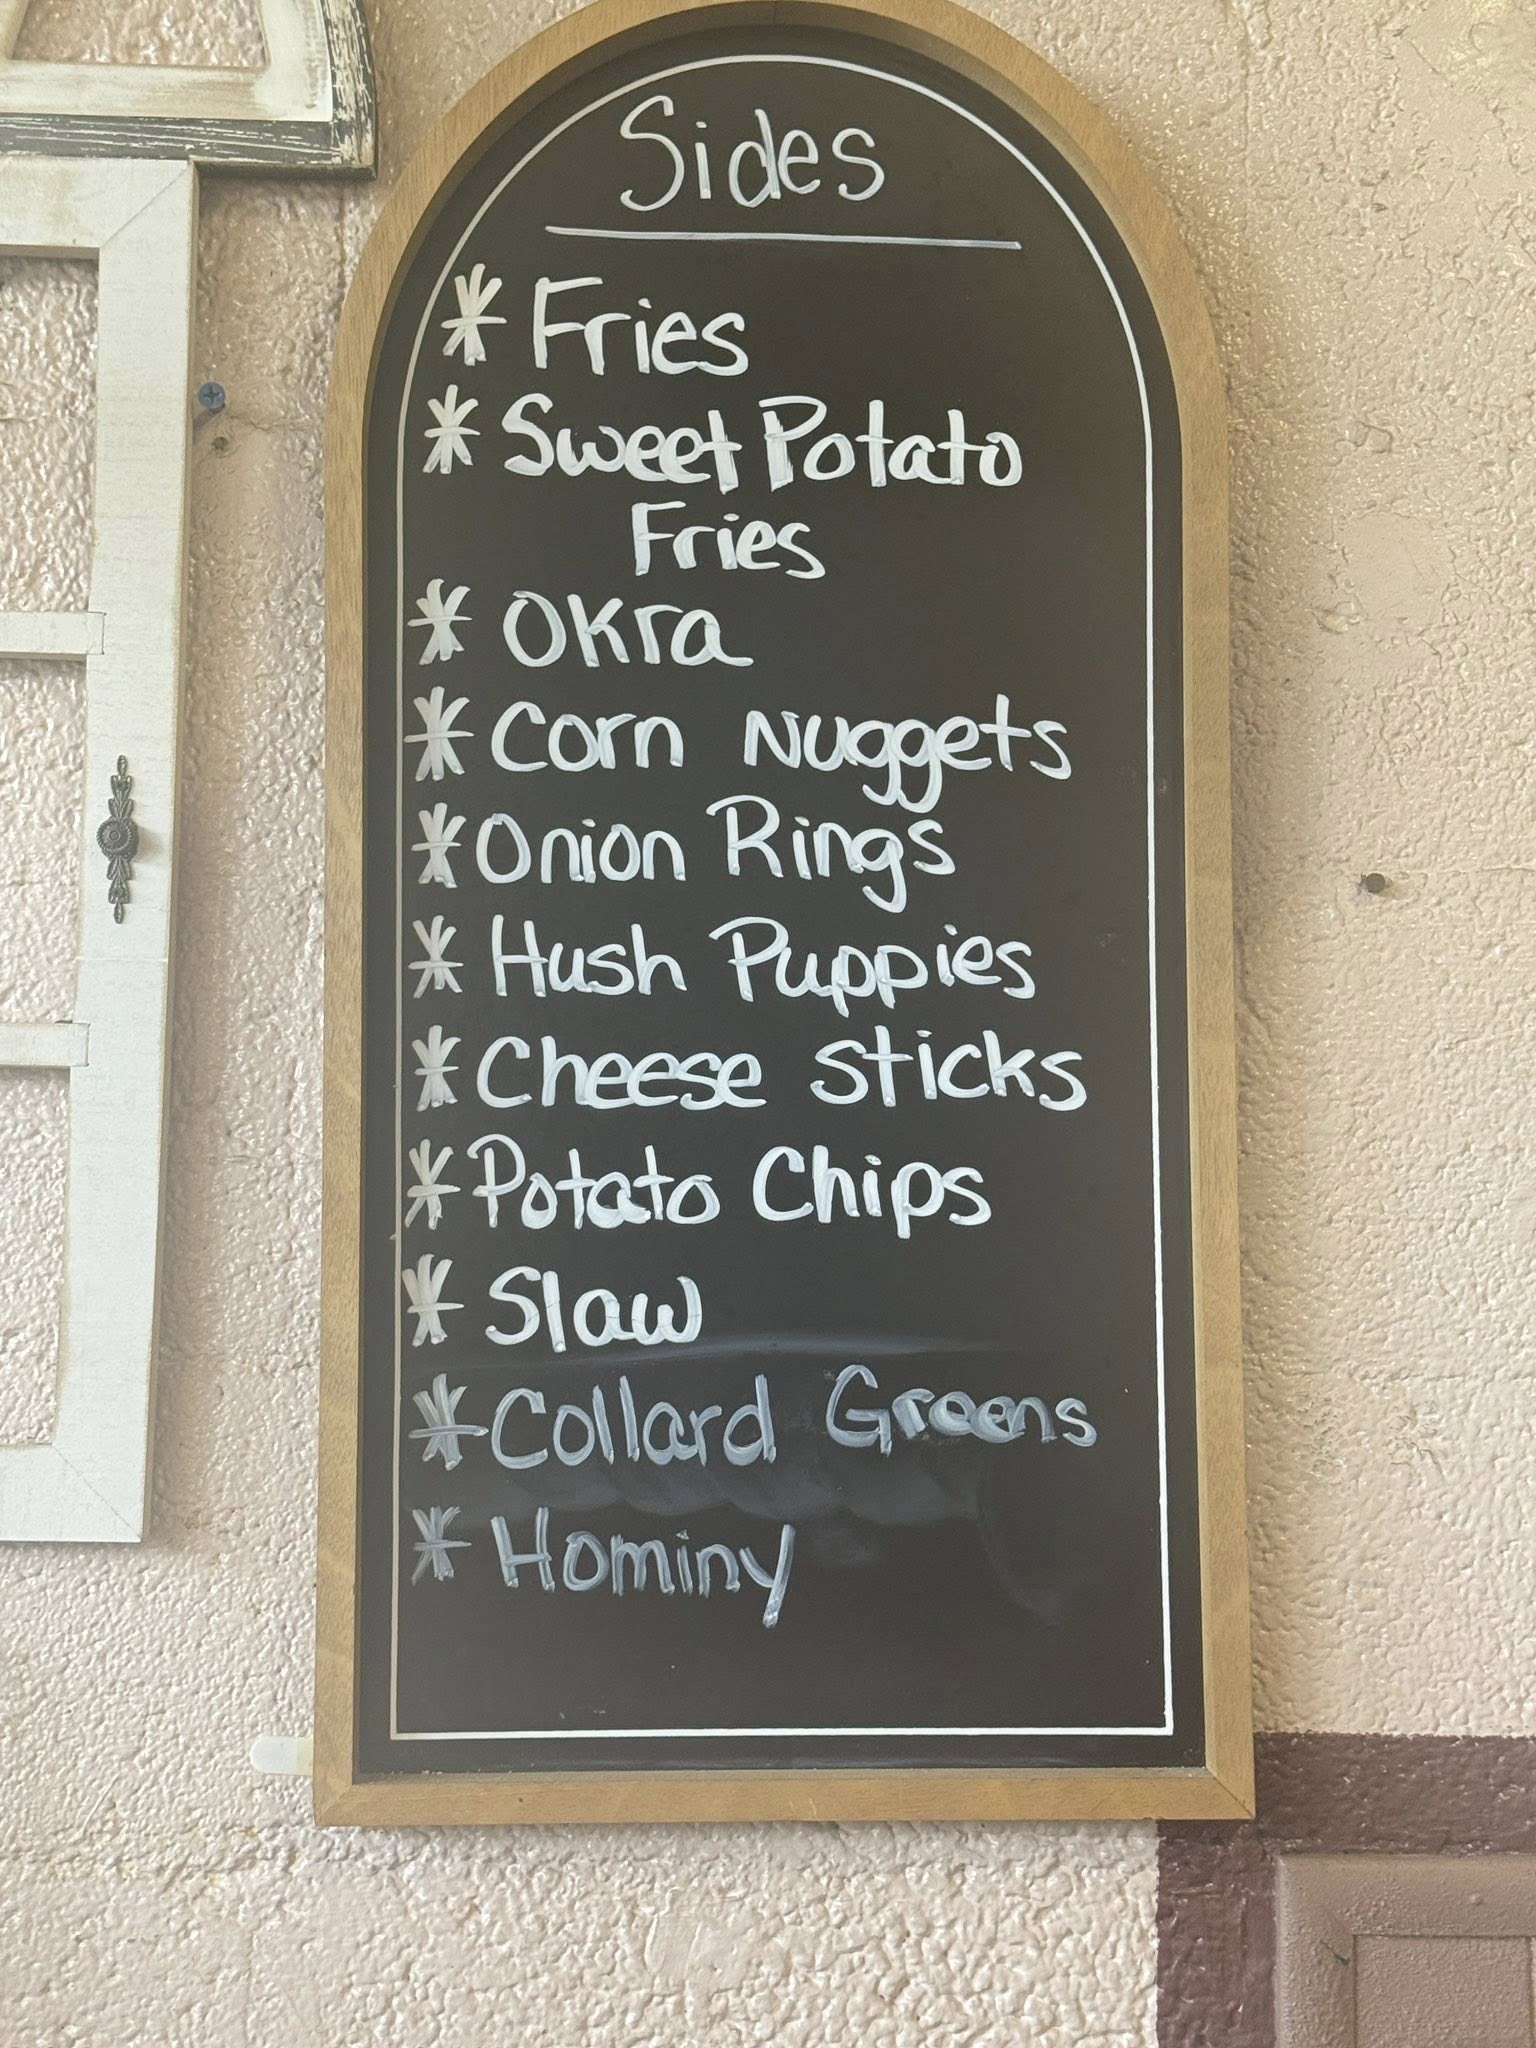 Sides
* Fries
* Sweet Potato
Fries
* Okra
* Corn Nuggets
* Onion Rings
* Hush Puppies
* Cheese Sticks
* Potato Chips
* Slaw
* Collard Greens
* Hominy